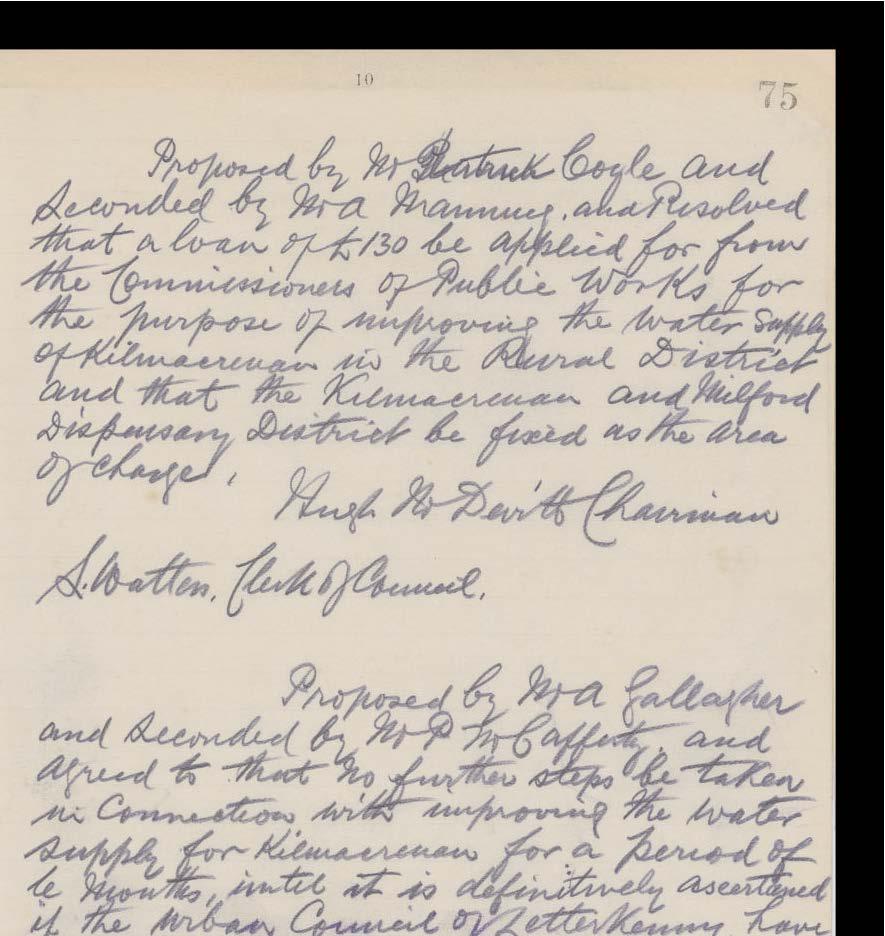 10
75
Proposed by Mr Patrick Coyle and
Seconded by Mr A Manning, and Resolved
that a loan of £130 be applied for from
the Commissioners of Public Works for
the purpose of improving the water supply
of Kilmacrenan in the Rural District
and that the Kilmacrenan and Milford
Dispensary District be fixed as the area
of charge,
Hugh McDevitt Chairman
S. Watters, Clerk of Council.
Proposed by Mr A Gallagher
and Seconded by Mr P McCafferty, and
agreed to that no further steps be taken
in Connection with improving the water
supply for Kilmacrenan for a period of
6 months, until it is definitively ascertained
if the Urban Council of Letterkenny have